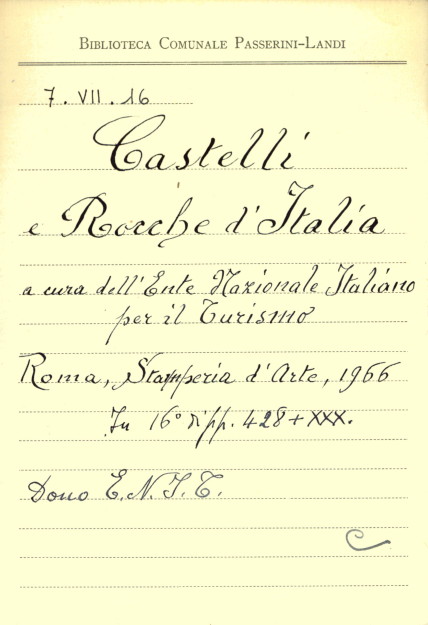 BIBLIOTECA COMUNALE PASSERINI-LANDI
7. VII. 16
Castelli
e Rocche d'Italia
a cura dell'Ente Nazionale Italiano
per il Turismo
Roma, Stamperia d'Arte, 1966
In 16° di pp. 428 + XXX.
Dono E.N.I.T.